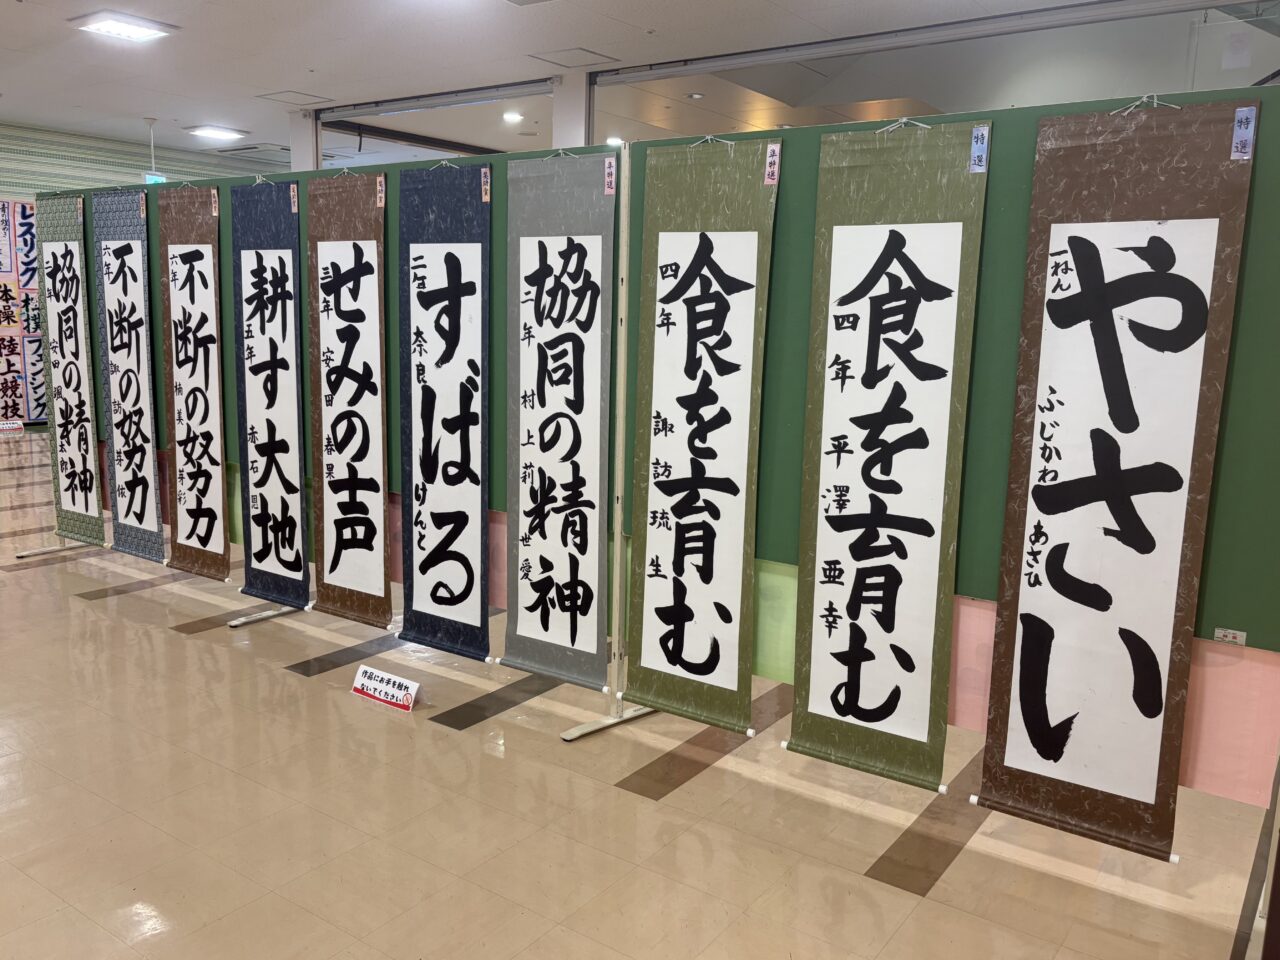 特選
やさい
一ねん
ふじかわ
あさひ
特選
食を育む
四年
平澤亜幸
準特選
食を育む
四年
諏訪琉生
準特選
協同の精神
二年
村上莉世愛
すばる
二年
奈良
けんと
せみの声
三年
安田春果
耕す大地
五年
赤石
不断の努力
六年
不断の努力
六年
諏訪芽依
協同の精神
二年
安田
太郎
作品にお手を触れ
ないでください
レスリング
相撲
フェンシング
体操
陸上競技